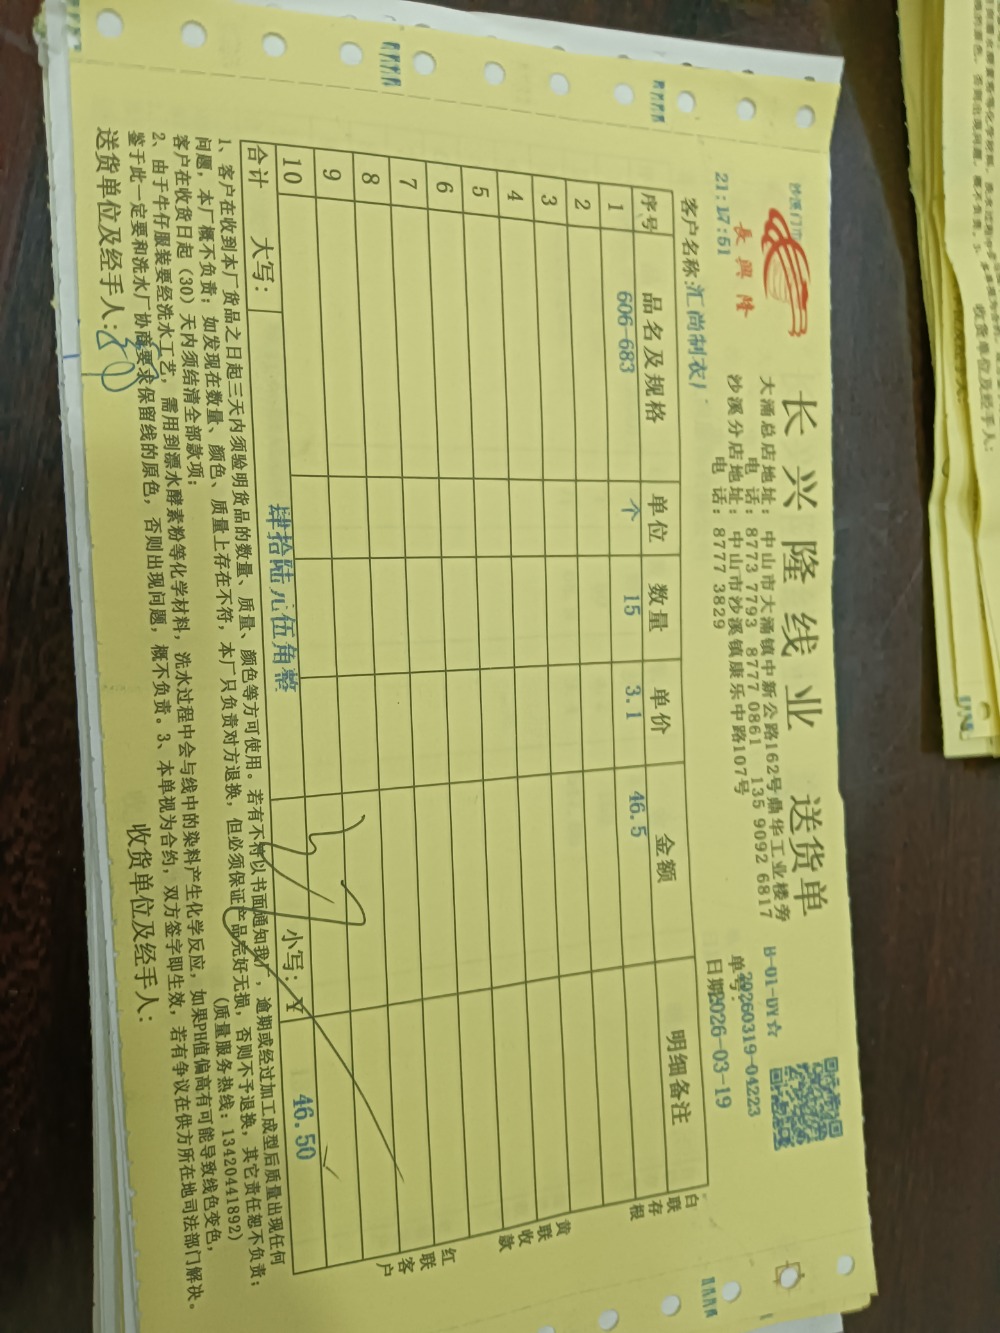 沙溪门市
長興隆
长兴隆线业 送货单
大涌总店地址：中山市大涌镇中新公路162号鼎华工业楼旁
电话：8773 7793 8777 0861 135 9092 6817
沙溪分店地址：中山市沙溪镇康乐中路107号
电话：8777 3829
B-01-DY☆
单号：20260319-04223
日期2026-03-19
21:17:51
客户名称:汇尚制衣厂
序号 品名及规格 单位 数量 单价 金额 明细备注
1 606-683 个 15 3.1 46.5
2
3
4
5
6
7
8
9
10
合计 大写： 肆拾陆元伍角整 小写：¥ 46.50
白联存根
黄联收款
红联客户
1、客户在收到本厂货品之日起三天内须验明货品的数量、质量、颜色等方可使用。若有不符以书面通知我厂，逾期或经过加工成型后质量出现任何
问题，本厂概不负责；如发现在数量、颜色、质量上存在不符，本厂只负责对方退换，但必须保证产品完好无损，否则不予退换，其它责任恕不负责；
客户在收货日起（30）天内须结清全部款项； （质量服务热线：13420441892）
2、由于牛仔服装要经洗水工艺，需用到漂水酵素粉等化学材料，洗水过程中会与线中的染料产生化学反应，如果PH值偏高有可能导致线色变色，
鉴于此一定要和洗水厂协商要求保留线的原色，否则出现问题，概不负责。3、本单视为合约，双方签字即生效，若有争议在供方所在地司法部门解决。
送货单位及经手人： 收货单位及经手人：
收货单位及经手人：